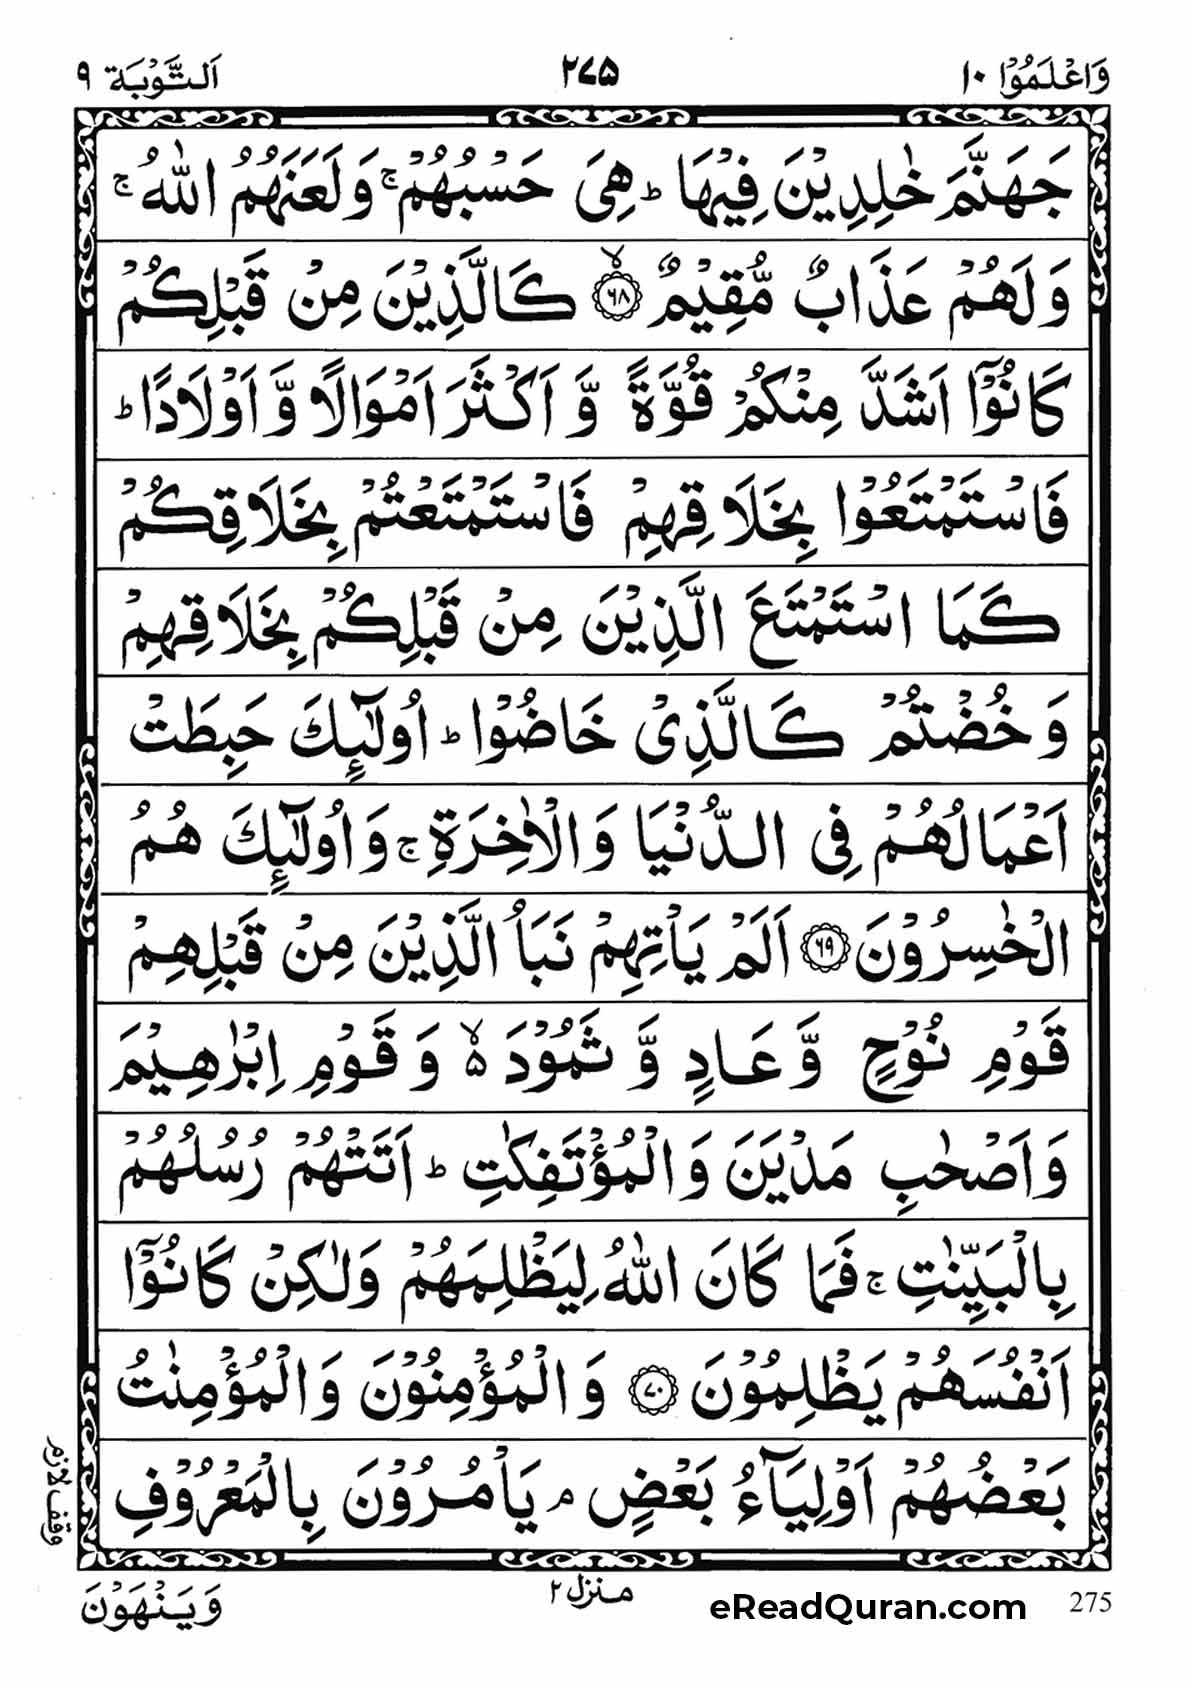 وَاعْلَمُوْۤا ۱۰ ۲۷۵ اَلتَّوْبَة ۹
جَهَنَّمَ خٰلِدِيْنَ فِيْهَا ؕ هِيَ حَسْبُهُمْ ۚ وَلَعَنَهُمُ اللّٰهُ ۚ
وَلَهُمْ عَذَابٌ مُّقِيْمٌ ۙ﴿۶۸﴾ كَالَّذِيْنَ مِنْ قَبْلِكُمْ
كَانُوْۤا اَشَدَّ مِنْكُمْ قُوَّةً وَّ اَكْثَرَ اَمْوَالًا وَّ اَوْلَادًا ؕ
فَاسْتَمْتَعُوْا بِخَلَاقِهِمْ فَاسْتَمْتَعْتُمْ بِخَلَاقِكُمْ
كَمَا اسْتَمْتَعَ الَّذِيْنَ مِنْ قَبْلِكُمْ بِخَلَاقِهِمْ
وَخُضْتُمْ كَالَّذِيْ خَاضُوْا ؕ اُولٰٓئِكَ حَبِطَتْ
اَعْمَالُهُمْ فِي الدُّنْيَا وَالْاٰخِرَةِ ۚ وَاُولٰٓئِكَ هُمُ
الْخٰسِرُوْنَ ﴿۶۹﴾ اَلَمْ يَاْتِهِمْ نَبَاُ الَّذِيْنَ مِنْ قَبْلِهِمْ
قَوْمِ نُوْحٍ وَّ عَادٍ وَّ ثَمُوْدَ ۙ۬ وَ قَوْمِ اِبْرٰهِيْمَ
وَاَصْحٰبِ مَدْيَنَ وَالْمُؤْتَفِكٰتِ ؕ اَتَتْهُمْ رُسُلُهُمْ
بِالْبَيِّنٰتِ ۚ فَمَا كَانَ اللّٰهُ لِيَظْلِمَهُمْ وَلٰكِنْ كَانُوْۤا
اَنْفُسَهُمْ يَظْلِمُوْنَ ﴿۷۰﴾ وَالْمُؤْمِنُوْنَ وَالْمُؤْمِنٰتُ
بَعْضُهُمْ اَوْلِيَآءُ بَعْضٍ ۘ يَاْمُرُوْنَ بِالْمَعْرُوْفِ
وقف لازم
وَيَنْهَوْنَ منزل ۲ eReadQuran.com 275